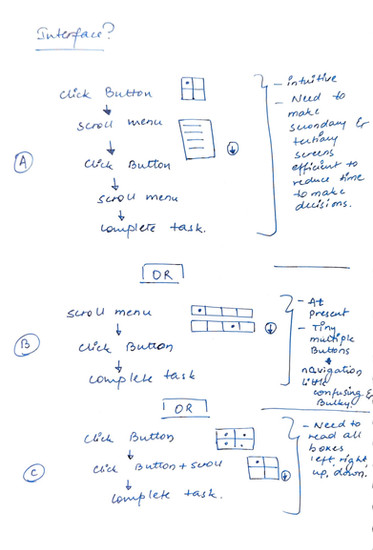 Interface?
click Button
↓
scroll menu
↓
click Button
↓
scroll menu
↓
complete task.
A
- intuitive
- Need to
make
secondary &
tertiary
screens
efficient to
reduce time
to make
decisions.
OR
scroll menu
↓
click Button
↓
complete task
B
- At
present
- Tiny
multiple
Buttons
navigation
little
confusing &
Bulky.
OR
click Button
↓
click Button + scroll
↓
complete task.
C
- Need to
read all
boxes
left, right,
up, down.